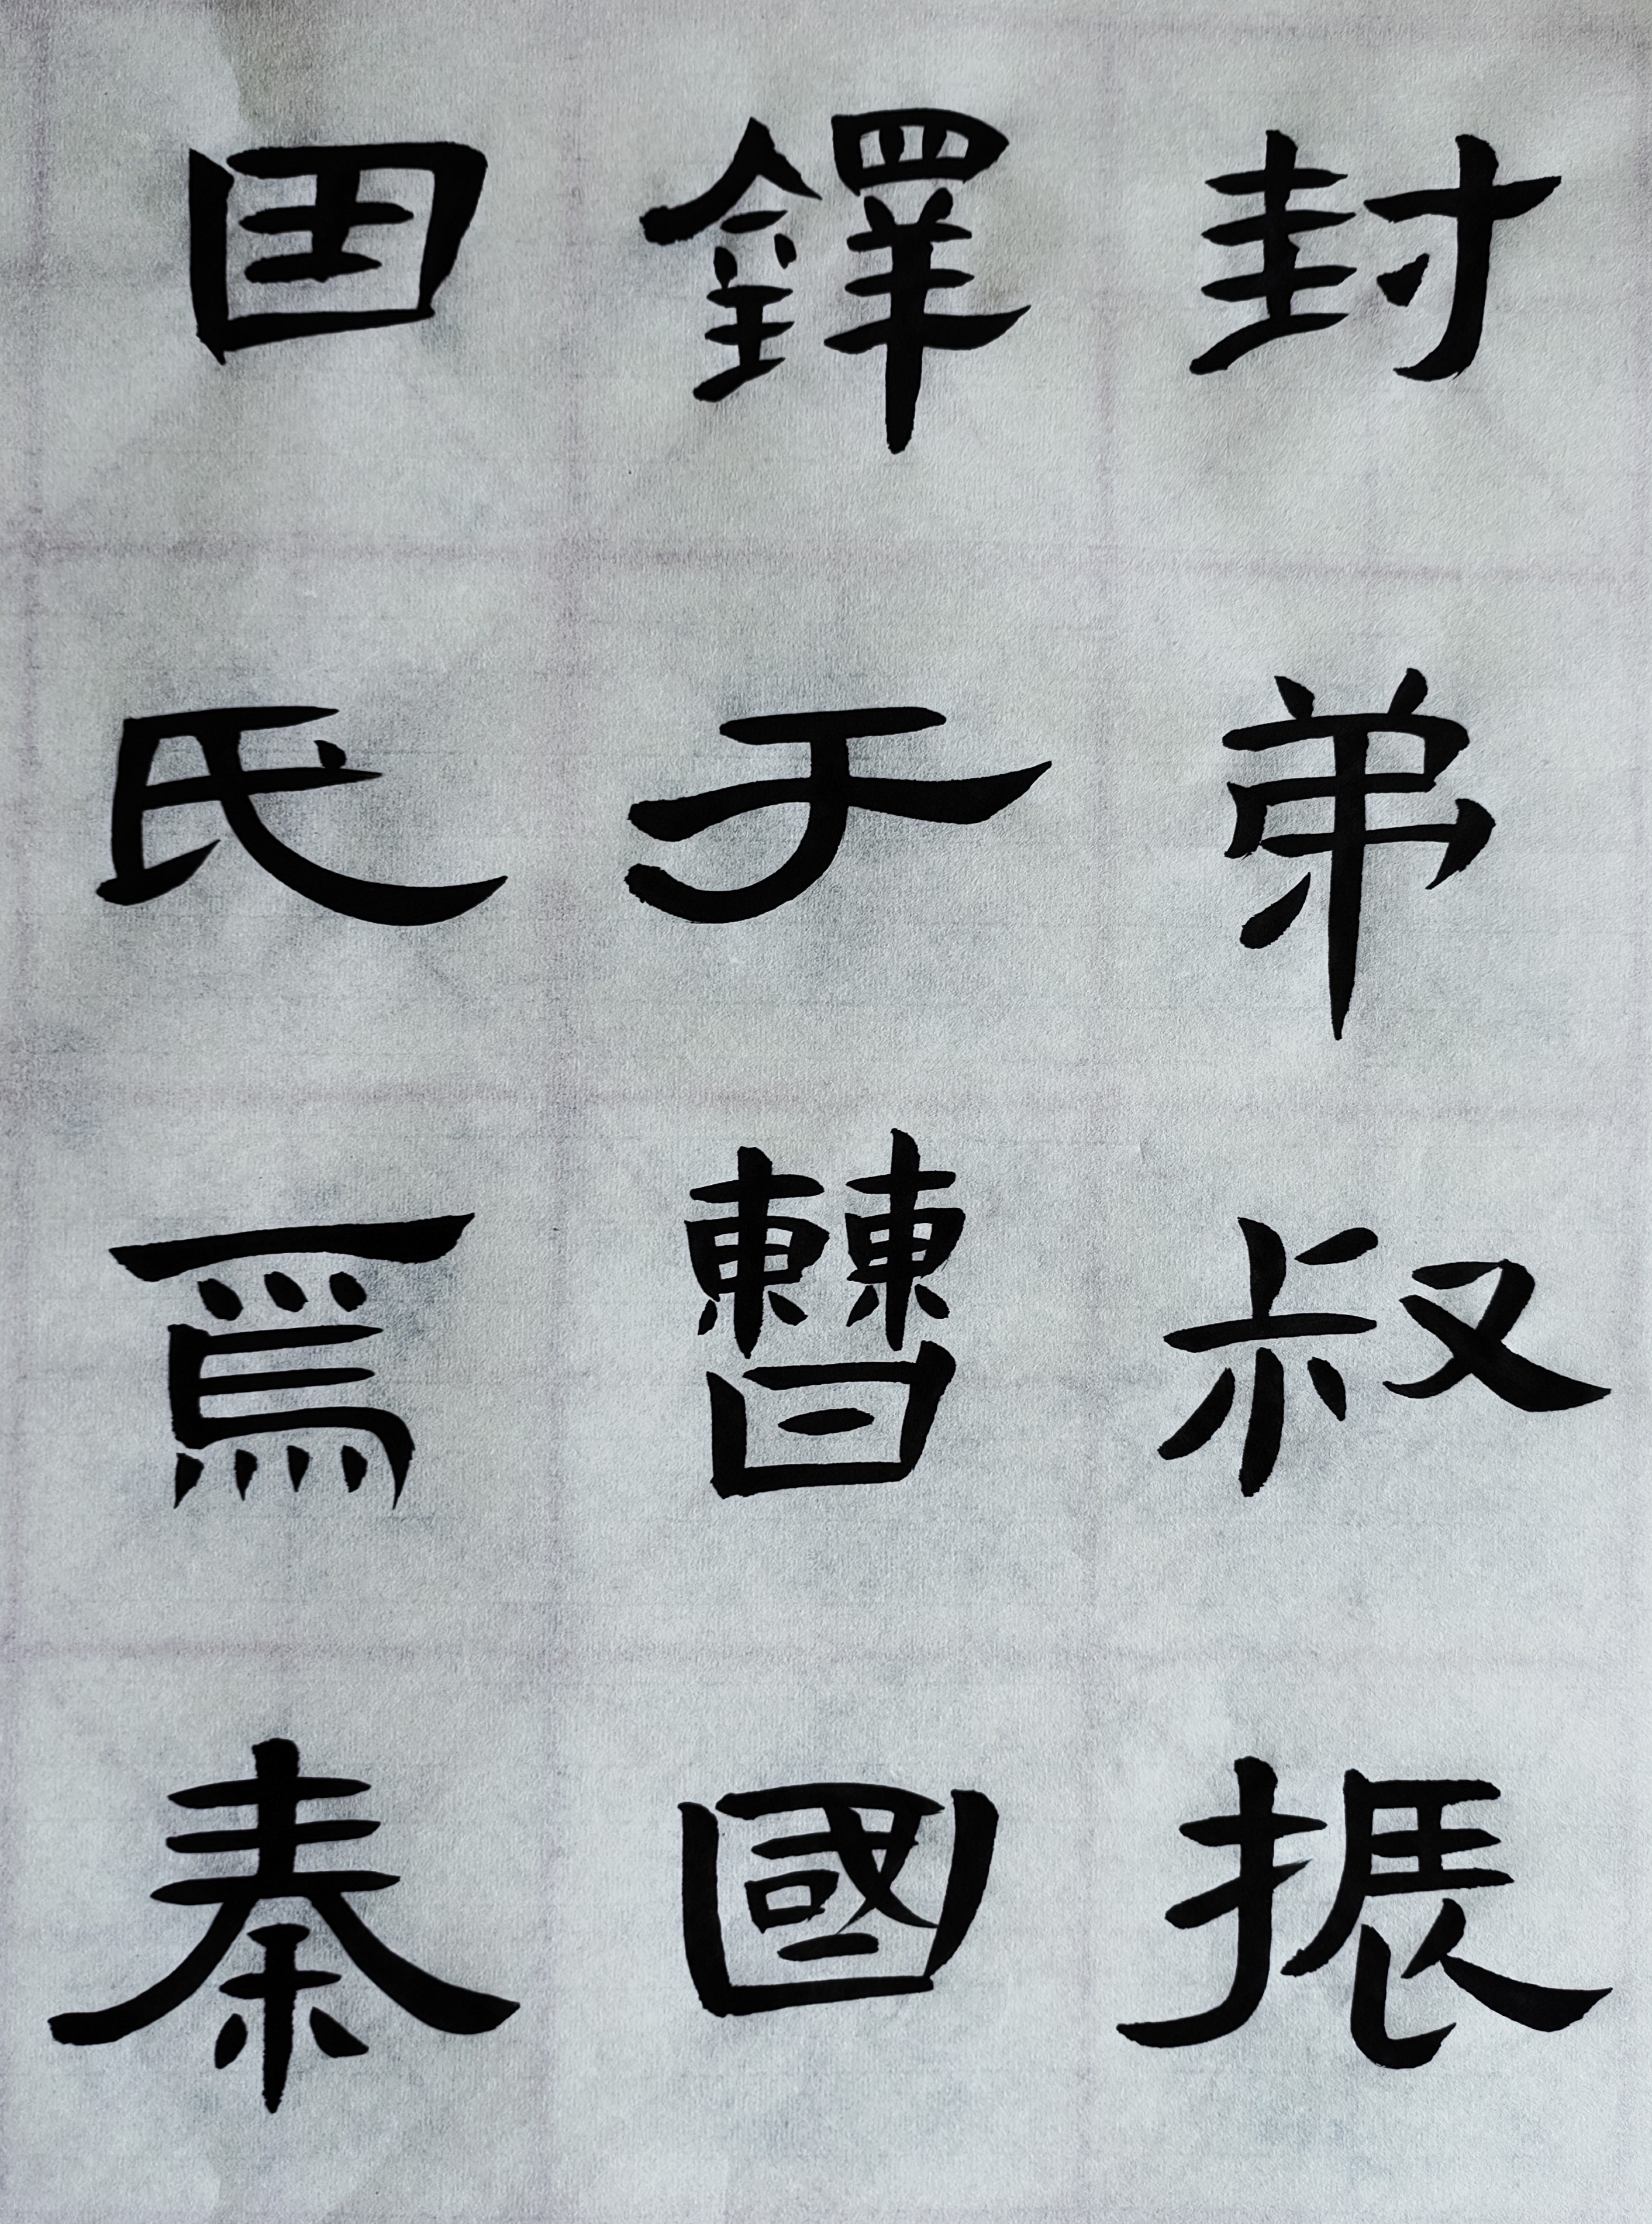 封弟叔振
鐸于曹國
因氏焉秦